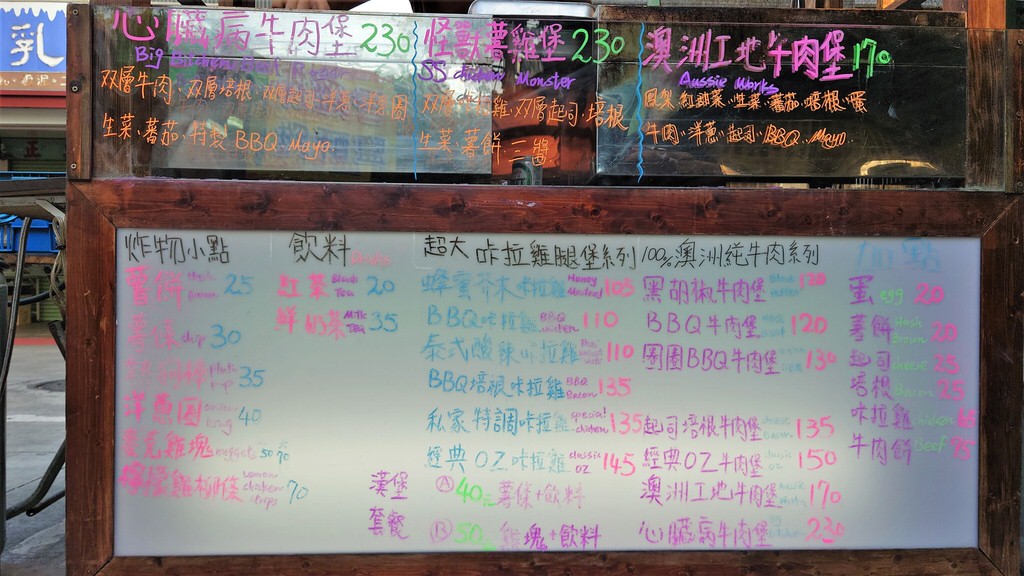 乳
心臟病牛肉堡 230
Big
双層牛肉、双層培根、
生菜、蕃茄、特製 BBQ Mayo
怪獸薯雞堡 230
SS chicken Monster
双層咔拉雞、双層起司、培根
生菜、薯餅 三醬
澳洲工地牛肉堡 170
Aussie Works
鳳梨、紅甜菜、生菜、蕃茄、培根、蛋
牛肉、洋蔥、起司、BBQ、Mayo
炸物小點
薯餅 Hash Brown 25
薯條 dip 30
35
洋蔥圈 40
雞塊 nuggets 50 70
雞柳條 chicken strips 70
飲料
紅茶 Black Tea 20
鮮奶茶 Milk Tea 35
超大咔拉雞腿堡系列
蜂蜜芥末咔拉雞 Honey Mustard 105
BBQ咔拉雞 BBQ chicken 110
泰式酸辣咔拉雞 110
BBQ培根咔拉雞 BBQ Bacon 135
私家特調咔拉雞 special chicken 135
經典OZ咔拉雞 classic OZ 145
100%澳洲純牛肉系列
黑胡椒牛肉堡 120
BBQ牛肉堡 120
圈圈BBQ牛肉堡 130
起司培根牛肉堡 135
經典OZ牛肉堡 150
澳洲工地牛肉堡 170
心臟病牛肉堡 230
加點
蛋 egg 20
薯餅 Hash Brown 20
起司 cheese
培根 Bacon
咔拉雞 chicken
牛肉餅 Beef
漢堡套餐
Ⓐ 40元 薯條+飲料
Ⓑ 50元 雞塊+飲料